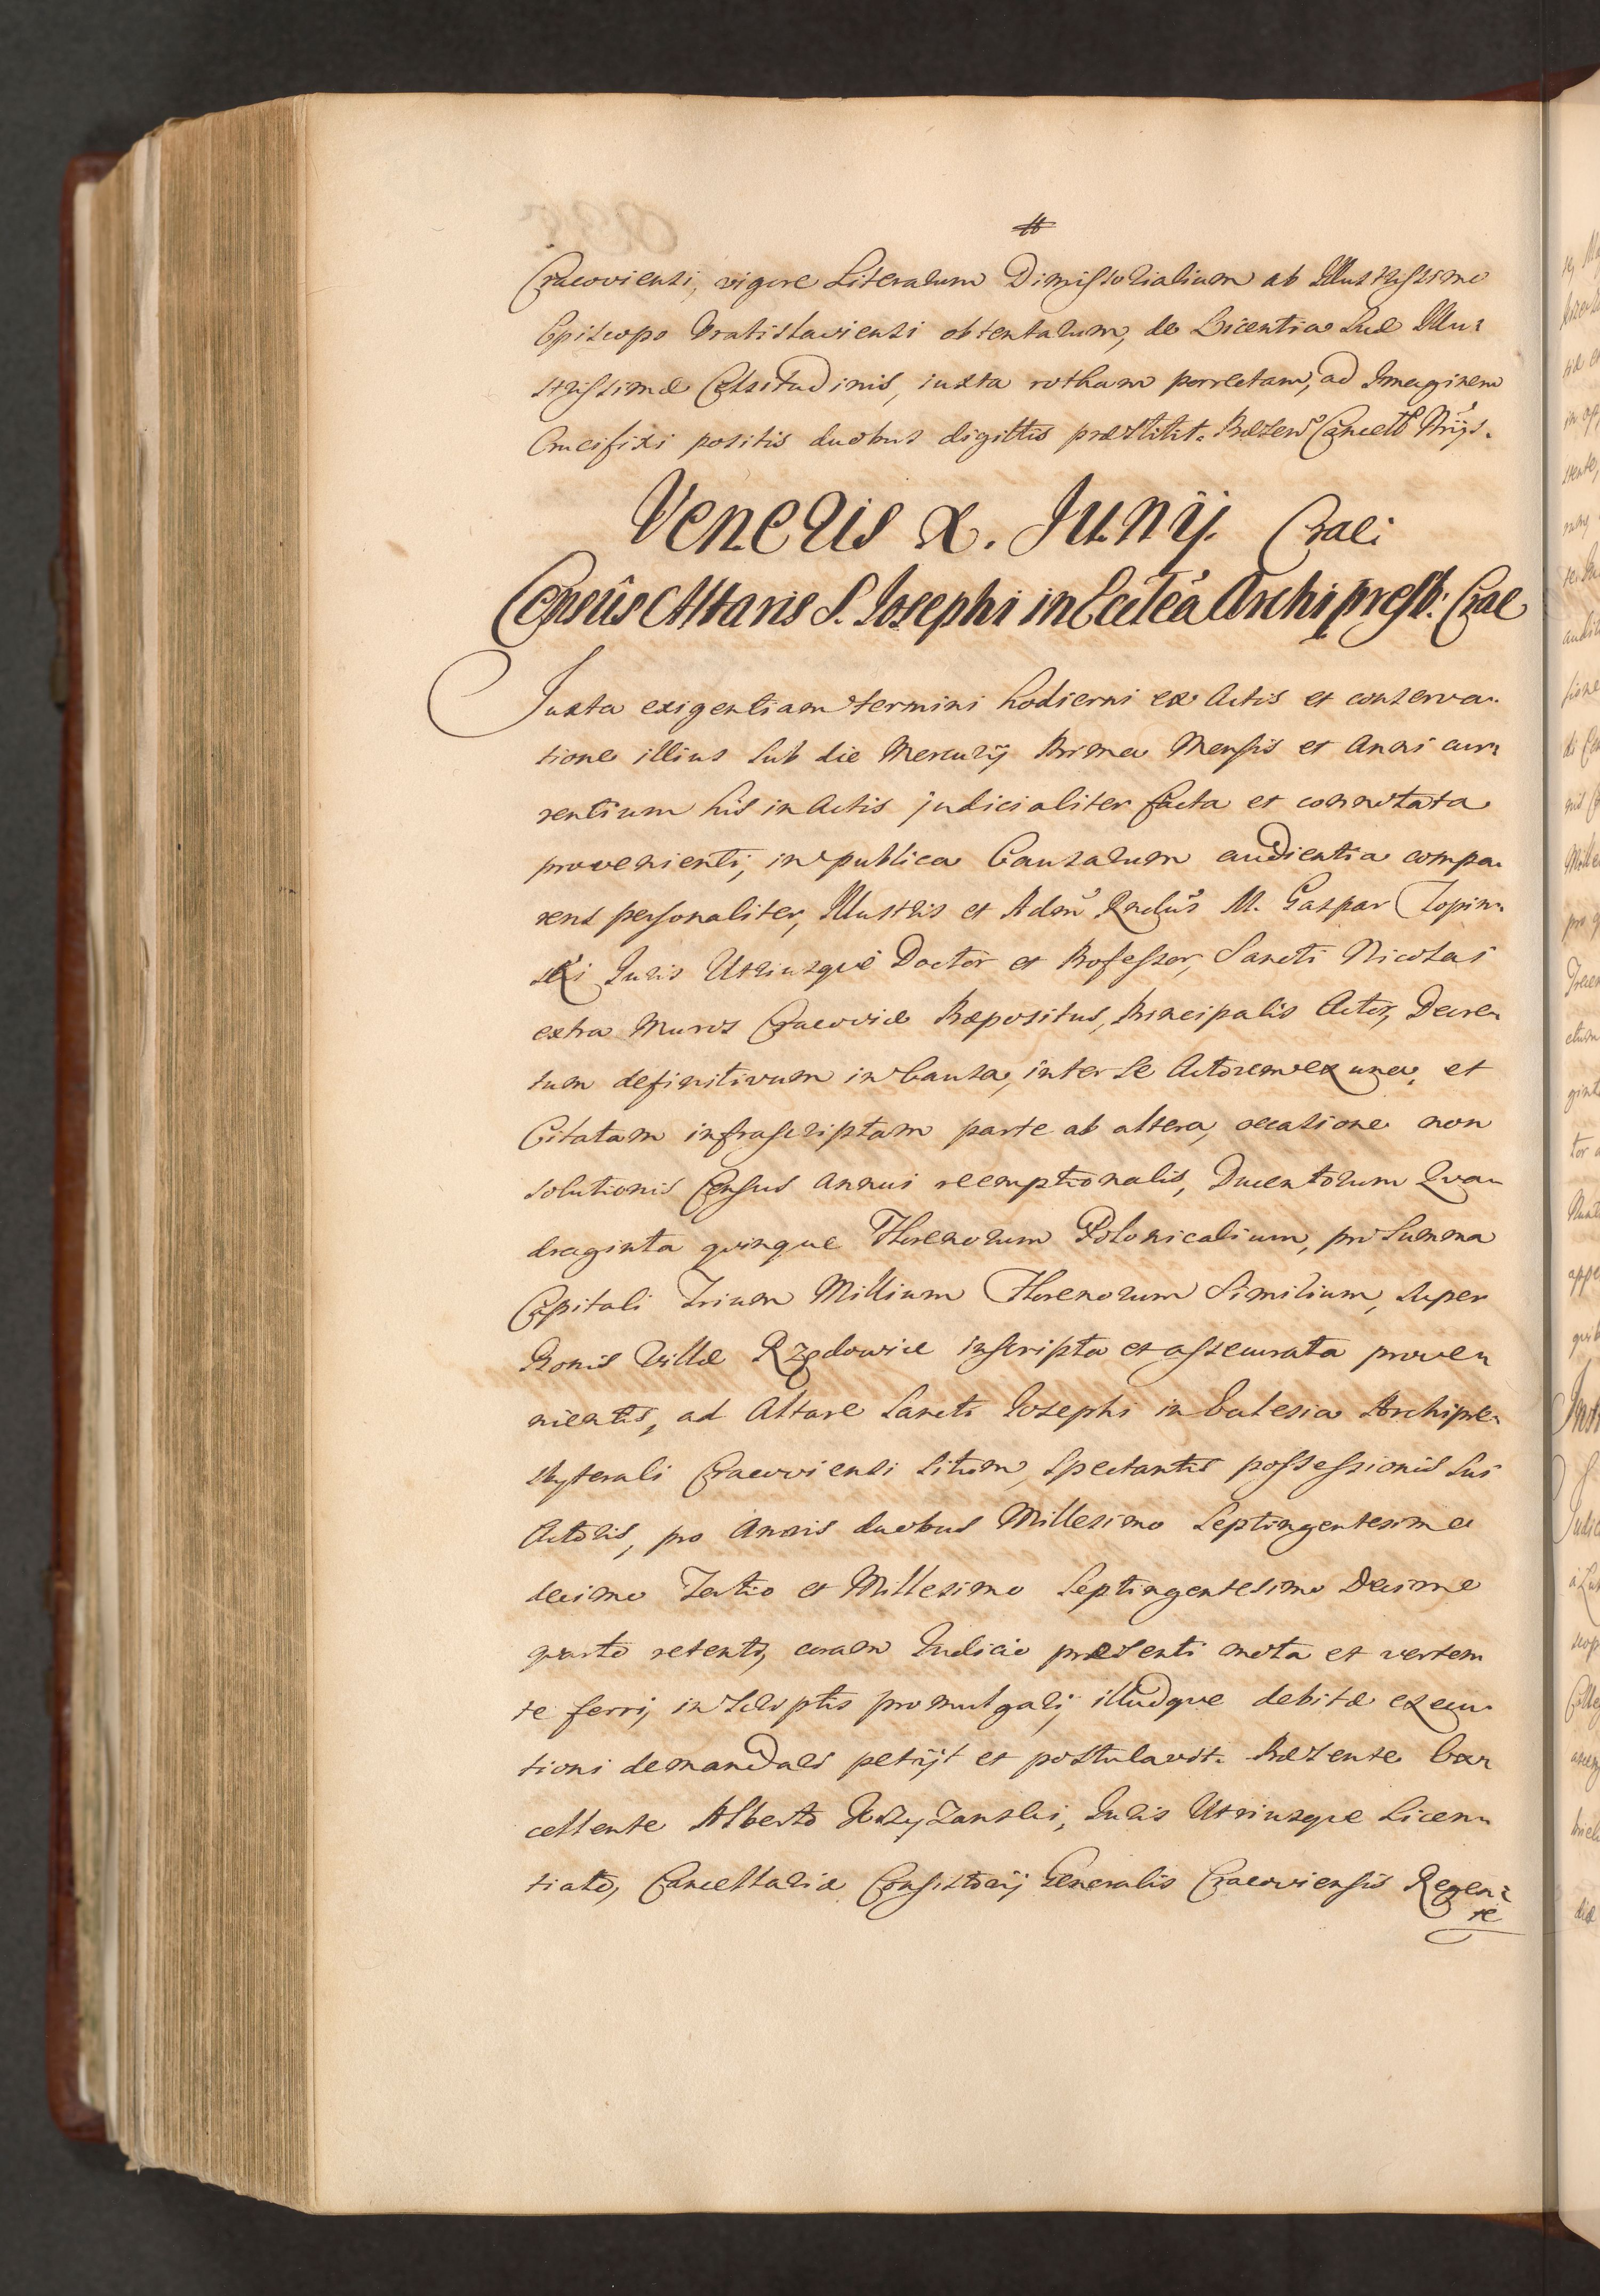 Cracoviensi, vigore Literarum Dimissorialium ab Illustrissimo
Episcopo Vratislaviensi obtentarum, de Licentia Suæ Illu-
strissimæ Celsitudinis, iuxta rotham porrectam, ad Imaginem
Crucifixi positis duobus digittis præstitit.
Veneris X. Junÿ. Crac:
Census Altaris S. Iosephi in Ecclea Archipresb: Crac
Juxta exigentiam termini hodierni ex Actis et conserva-
tione illius sub die Mercurÿ Prima Mensis et Anni cur-
rentium his in Actis judicialiter facta et connotata
provenienti, in publica Causarum audientia compa-
rens personaliter, Illustris et Adm Rndus M. Gaspar
ski Iuris Utriusque Doctor et Professor, Sancti Nicolai
extra Muros Cracoviæ Præpositus, Principalis Actor, Decre-
tum definitivum in Causa, inter se Actorem ex una, et
Citatam infrascriptam parte ab altera, occasione non
solutionis Census annui reemptionalis, Ducentorum Qua-
draginta quinque Florenorum Polonicalium, pro Summa
Capitali Trium Millium Florenorum Similium, super
Bonis Villæ Rzędowice inscripta et assecurata prove-
nientis, ad Altare Sancti Iosephi in Ecclesia Archipre-
sbyterali Cracoviensi situm, spectantis possessionis sui
Actoris, pro Annis duobus Millesimo Septingentesimo
decimo Tertio et Millesimo Septingentesimo Decimo
quarto retenti, coram Iudicio præsenti mota et verten-
te ferri, in Scriptis promulgari, illudque debitæ execu-
tioni demandari petÿt et postulavit. Præsente Exce-
cellente Alberto Iuris Utriusque Licen-
tiato, Cancellariæ Consistorÿ Generalis Cracoviensis Regen-
te